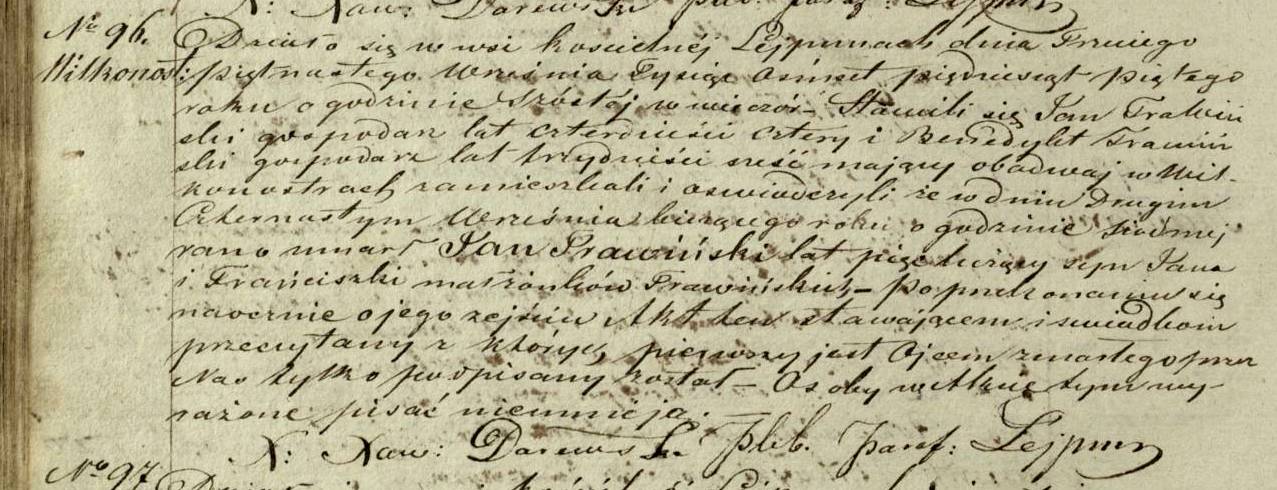 X: Xaw: Darewski Pleb. paraf: Lejpun
No 96.
Witkonost:
Działo się w wsi kościelnéj Lejpunach dnia Trzeciego
Piętnastego Września Tysiąc ośmset pięćdziesiąt piątego
roku o godzinie szóstéj w wieczór – Stawili się Jan Trawiń
ski gospodarz lat czterdzieści cztery i Benedykt Trawiń
ski gospodarz lat trzydzieści sześć mający obadwaj w Wit-
konostrach zamieszkali i oświadczyli że w dniu Drugim
Czternastym Września bieżącego roku o godzinie siódmej
rano umarł Jan Prawiński lat pięć liczący syn Jana
i Franciszki małżonków Prawińskich – Po przekonaniu się
naocznie o jego zejściu Akt ten stawającem i swiadkom
przeczytany z których pierwszy jest Ojcem zmarłego przez
Nas tylko podpisany został – Osoby w Akcie tym wy-
rażone pisać nieumieją.
X: Xaw: Darewski. Plb. Paraf: Lejpun
No 97.
Działo się w wsi kościel Lejpun